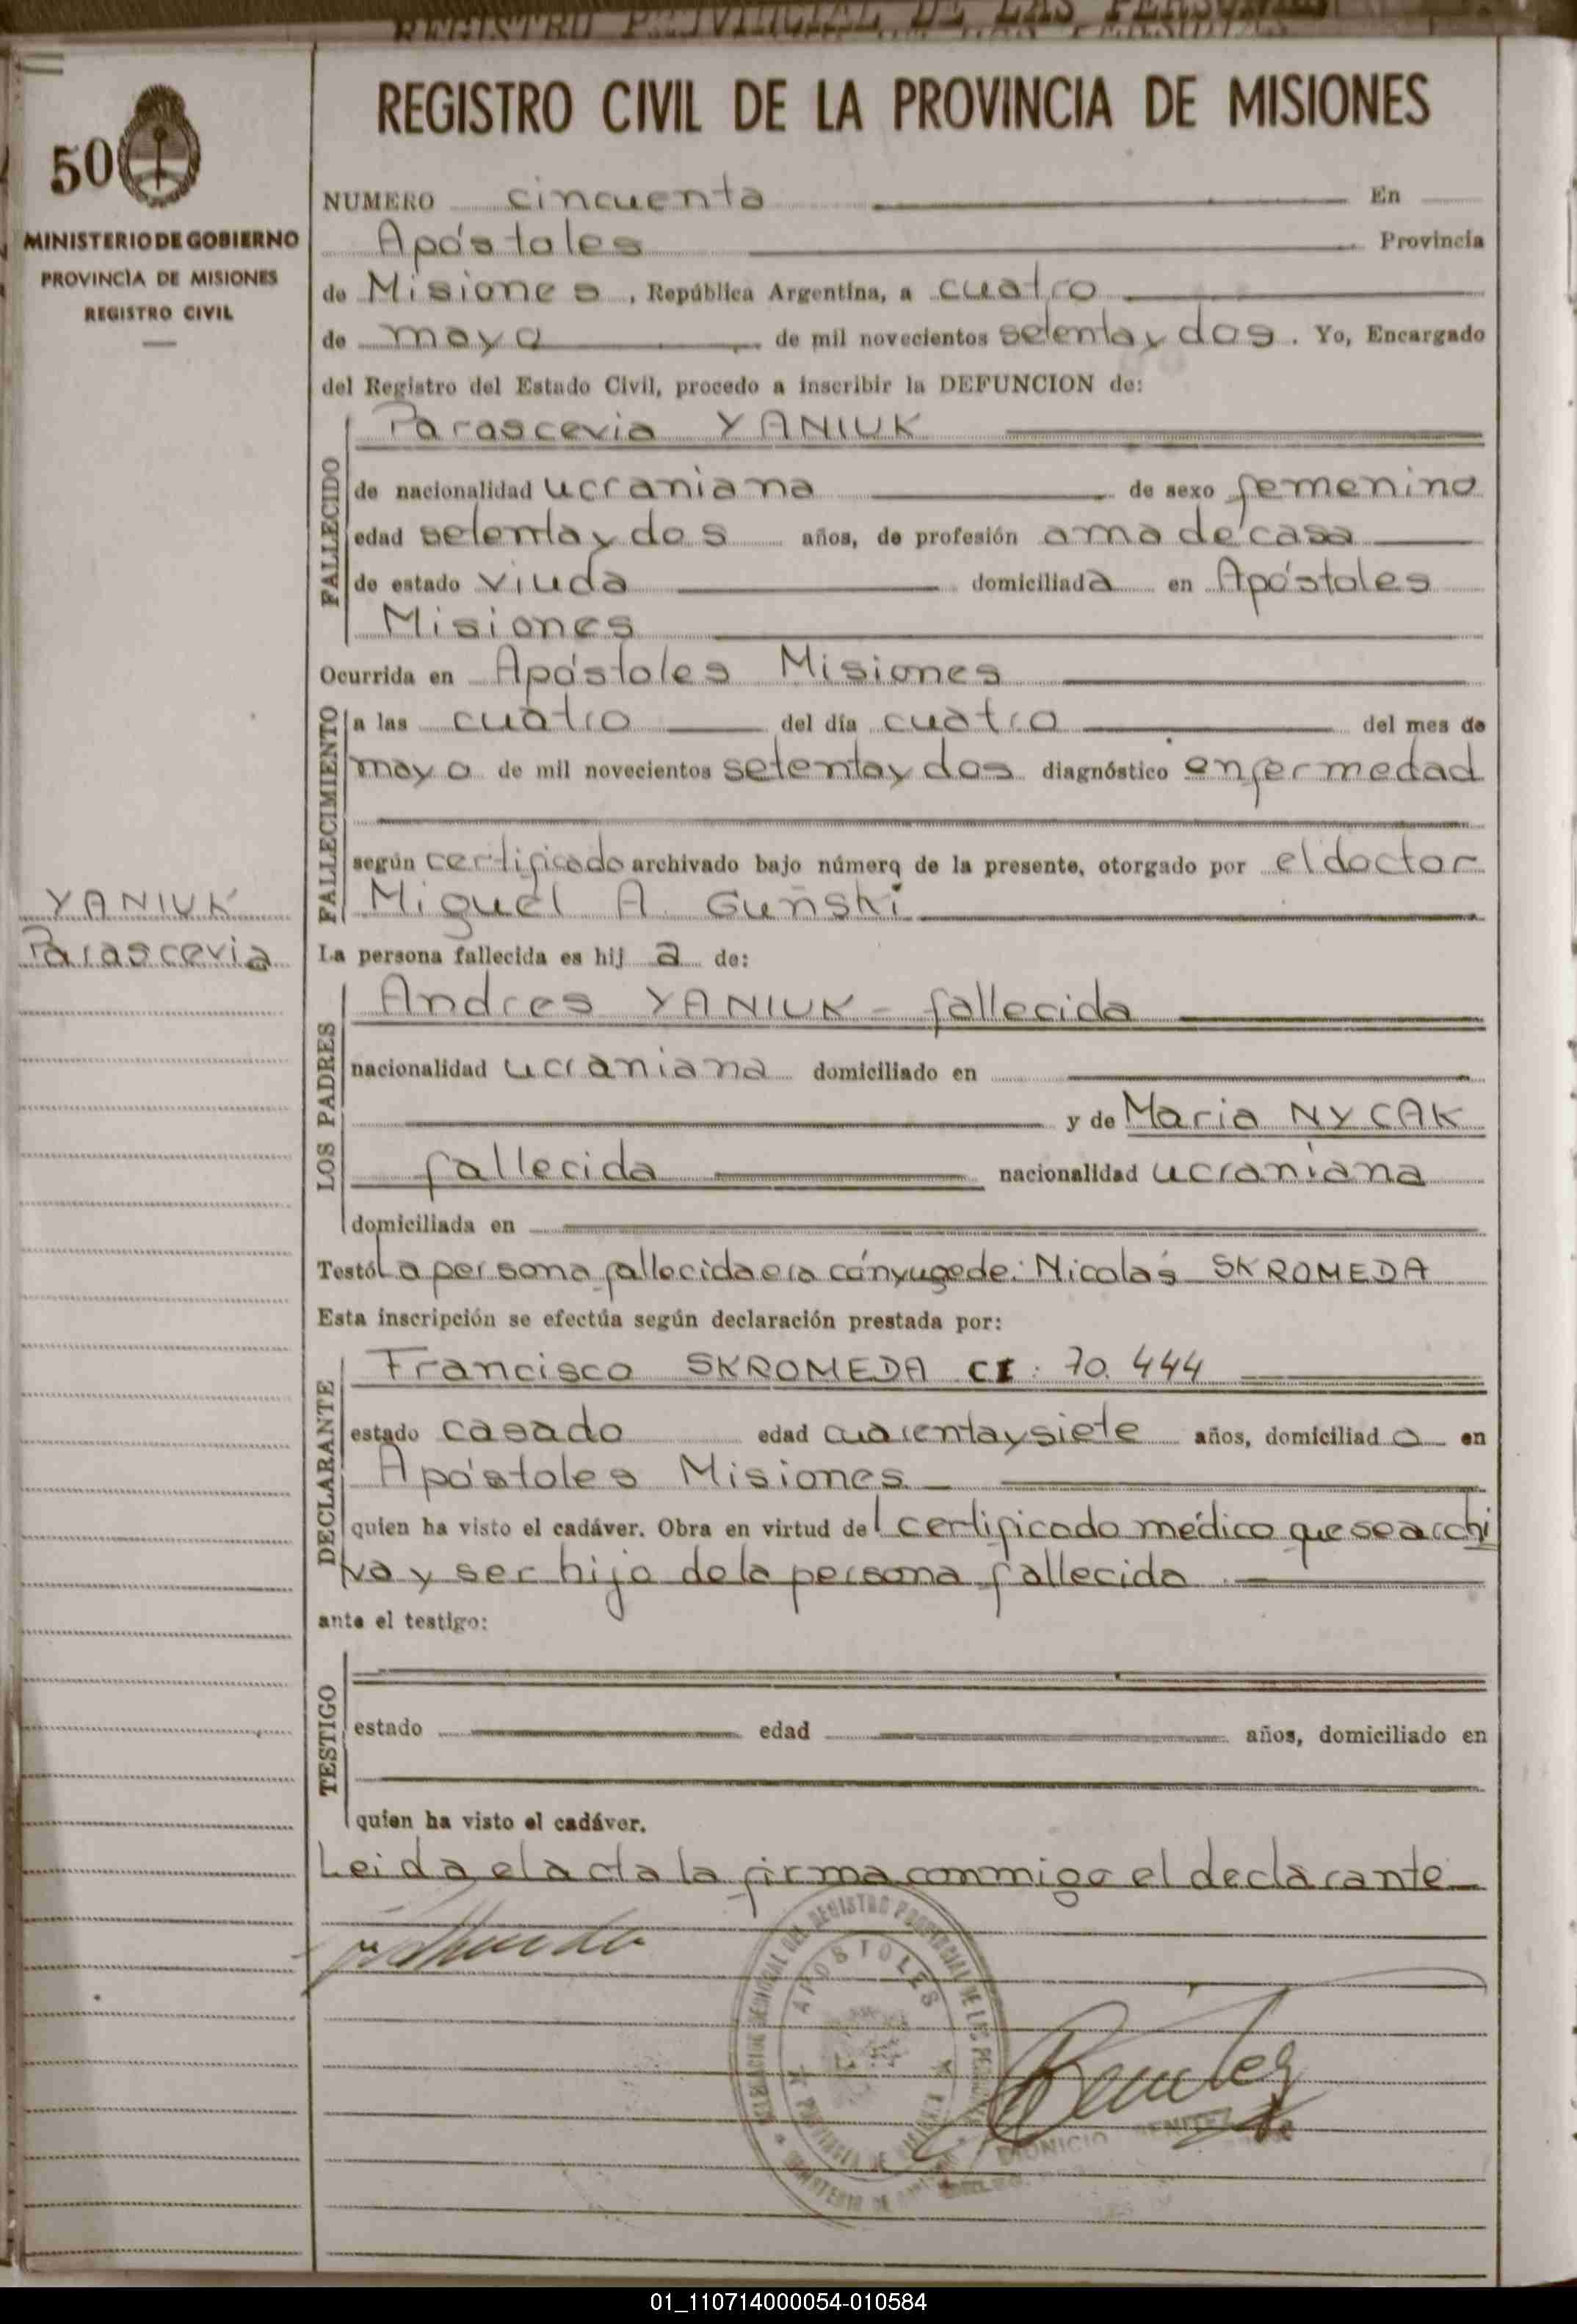 REGISTRO PROVINCIAL DE LAS PERSONAS
50
MINISTERIO DE GOBIERNO
PROVINCIA DE MISIONES
REGISTRO CIVIL
REGISTRO CIVIL DE LA PROVINCIA DE MISIONES
NUMERO cincuenta En
Apóstoles Provincia
de Misiones, República Argentina, a cuatro
de mayo de mil novecientos setenta y dos. Yo, Encargado
del Registro del Estado Civil, procedo a inscribir la DEFUNCION de:
FALLECIDO
Parascevia YANIUK
de nacionalidad ucraniana de sexo femenino
edad setenta y dos años, de profesión ama de casa
de estado viuda domiciliada en Apóstoles
Misiones
Ocurrida en Apóstoles Misiones
FALLECIMIENTO
a las cuatro del día cuatro del mes de
mayo de mil novecientos setenta y dos diagnóstico enfermedad
según certificado archivado bajo número de la presente, otorgado por el doctor
Miguel A. Guñski
YANIUK
Parascevia
La persona fallecida es hija de:
LOS PADRES
Andres YANIUK - fallecida
nacionalidad ucraniana domiciliado en
y de Maria NYCAK
fallecida nacionalidad ucraniana
domiciliada en
Testó La persona fallecida era cónyuge de: Nicolás SKROMEDA
Esta inscripción se efectúa según declaración prestada por:
DECLARANTE
Francisco SKROMEDA CI. 70.444
estado casado edad cuarenta y siete años, domiciliado en
Apóstoles Misiones
quien ha visto el cadáver. Obra en virtud del certificado médico que se archi
va y ser hijo de la persona fallecida
ante el testigo:
TESTIGO
estado edad años, domiciliado en
quien ha visto el cadáver.
Leida el acta la firma conmigo el declarante
DELEGACION SECCIONAL DEL REGISTRO PROVINCIAL DE LAS PERSONAS
APOSTOLES
PROVINCIA DE MISIONES
MINISTERIO DE
Benitez
DIONICIO BENITEZ
01_110714000054-010584